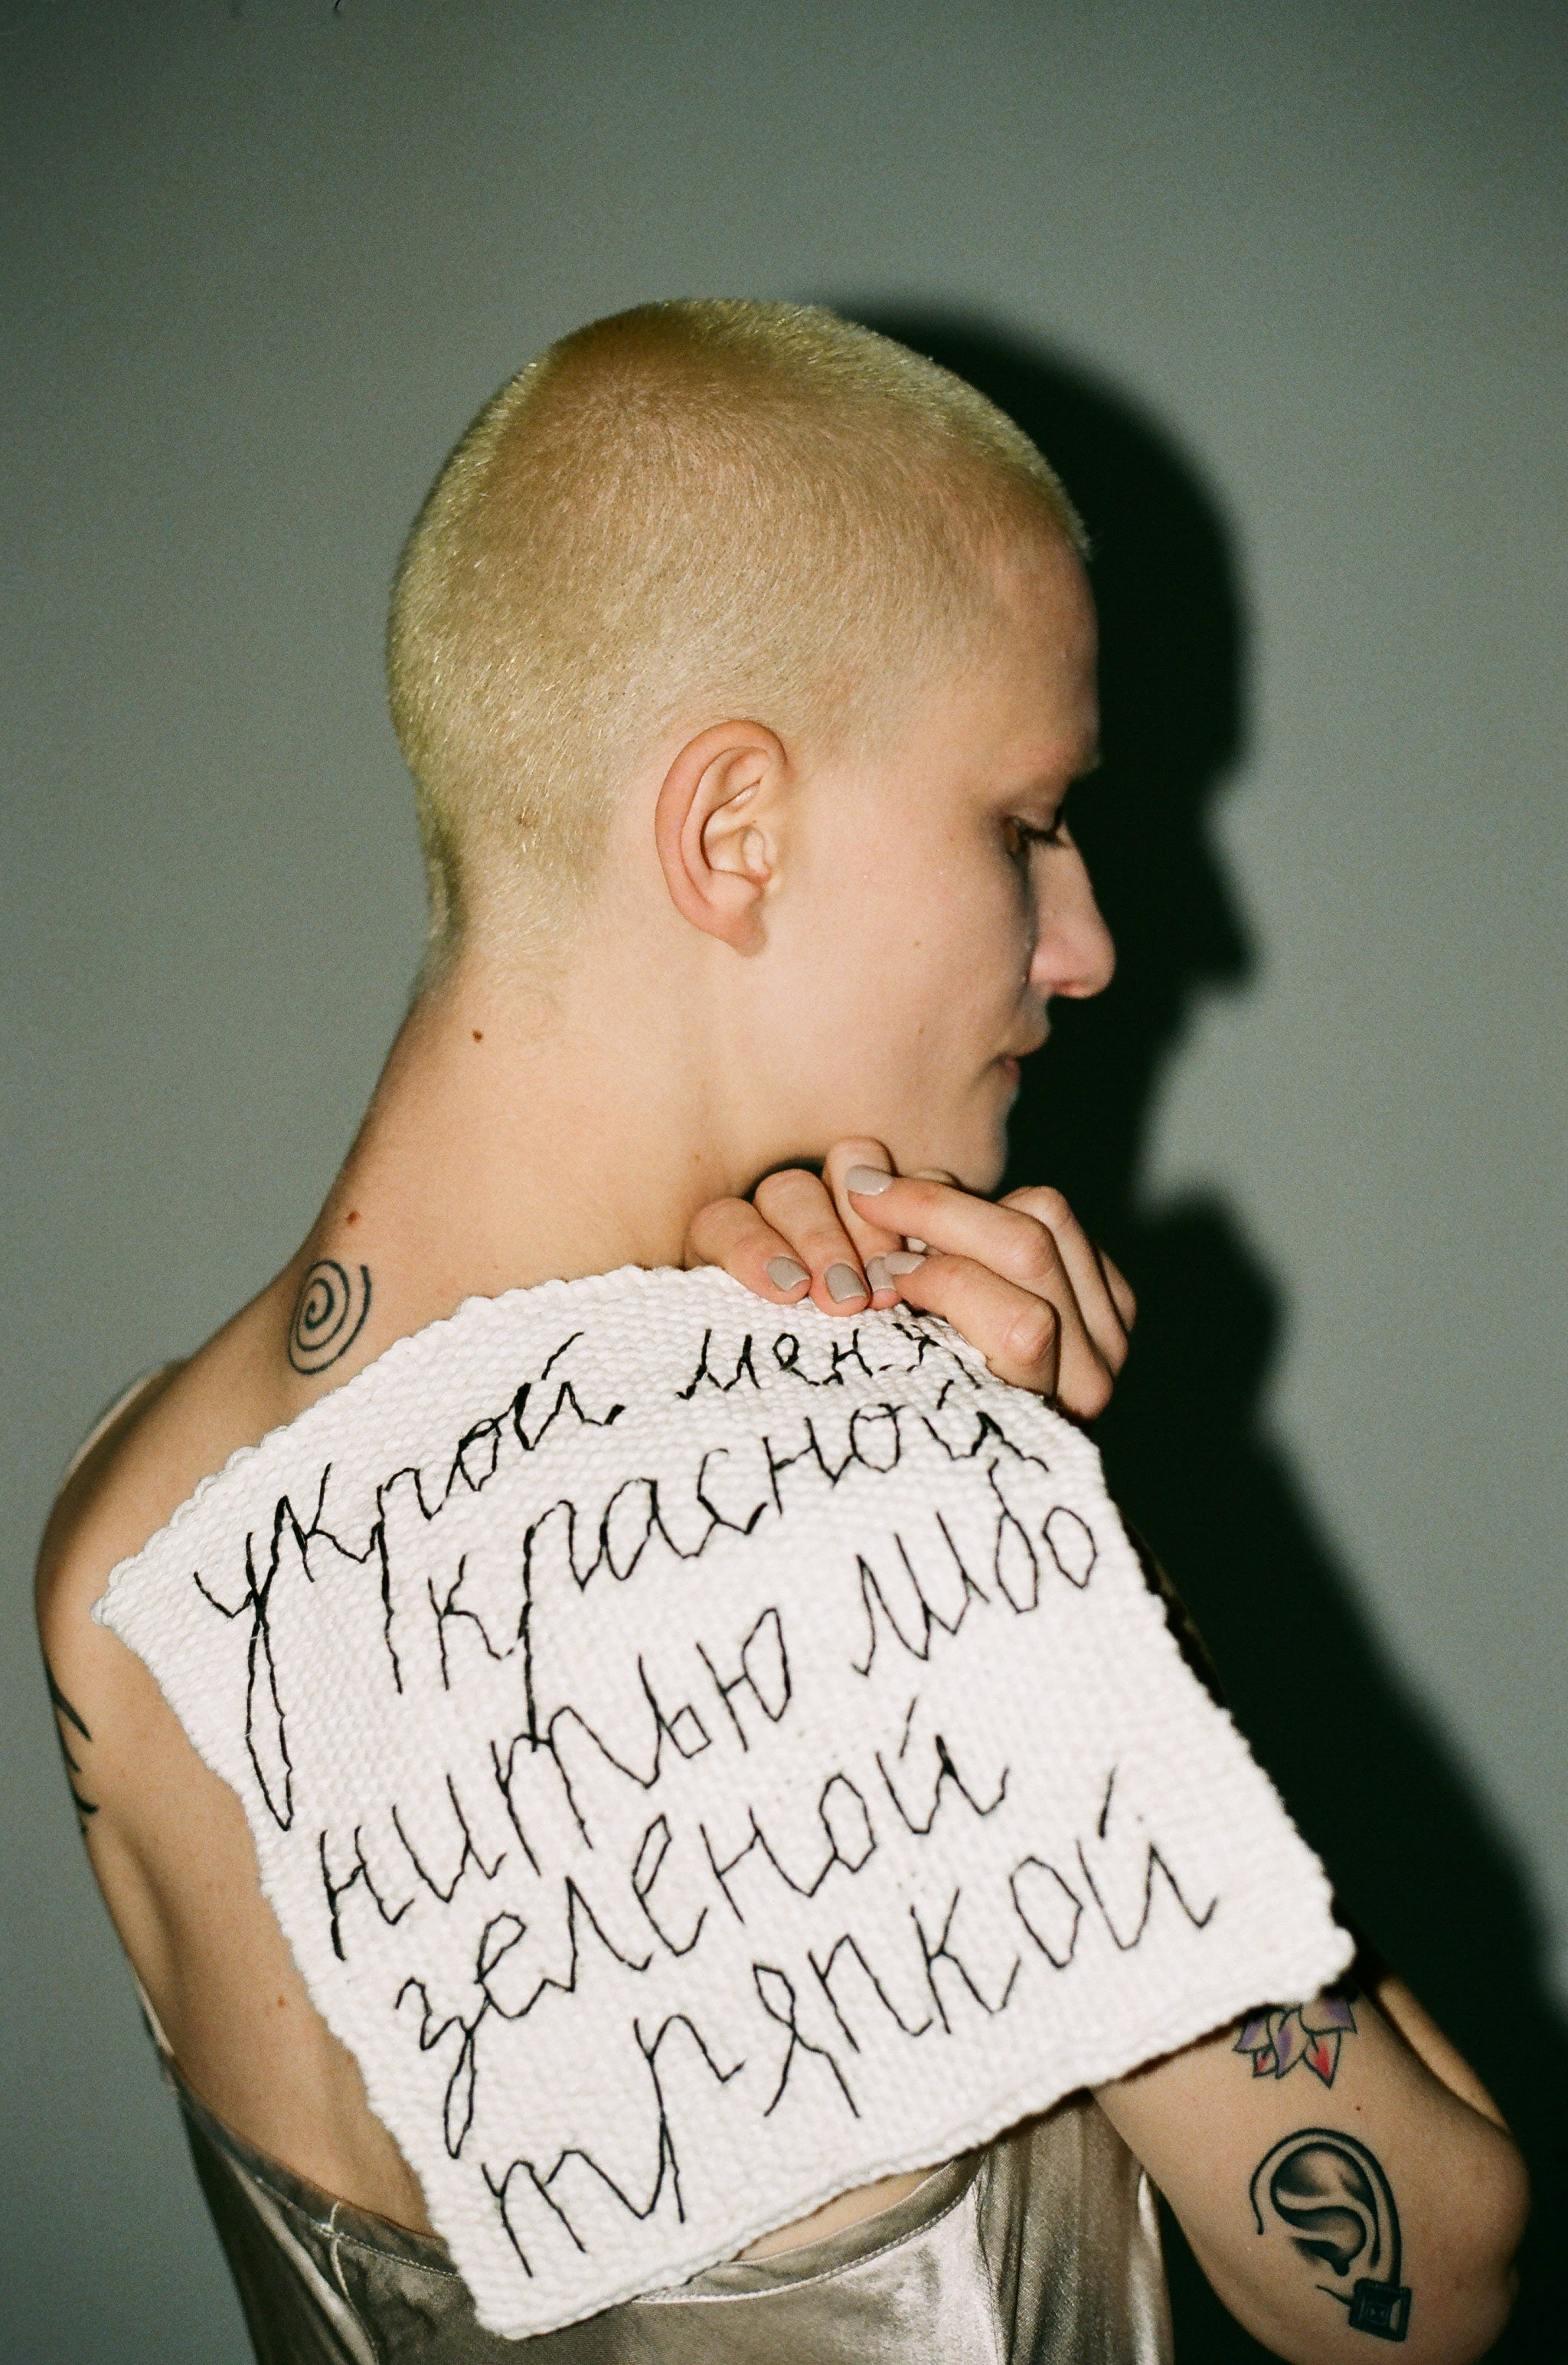 укрой меня
красной
нитью либо
зеленой
тряпкой